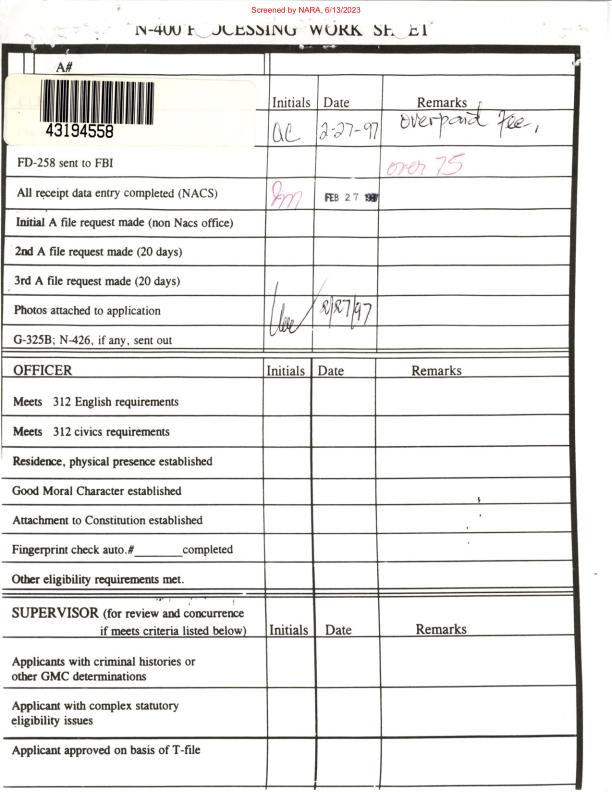 Screened by NARA, 6/13/2023
N-400 PROCESSING WORK SHEET
A#
43194558
Initials Date Remarks
QC 2-27-97 overpaid Fee,
FD-258 sent to FBI over 75
All receipt data entry completed (NACS) FEB 27 1997
Initial A file request made (non Nacs office)
2nd A file request made (20 days)
3rd A file request made (20 days)
Photos attached to application 2/27/97
G-325B; N-426, if any, sent out
OFFICER Initials Date Remarks
Meets 312 English requirements
Meets 312 civics requirements
Residence, physical presence established
Good Moral Character established
Attachment to Constitution established
Fingerprint check auto.#________completed
Other eligibility requirements met.
SUPERVISOR (for review and concurrence
if meets criteria listed below) Initials Date Remarks
Applicants with criminal histories or
other GMC determinations
Applicant with complex statutory
eligibility issues
Applicant approved on basis of T-file